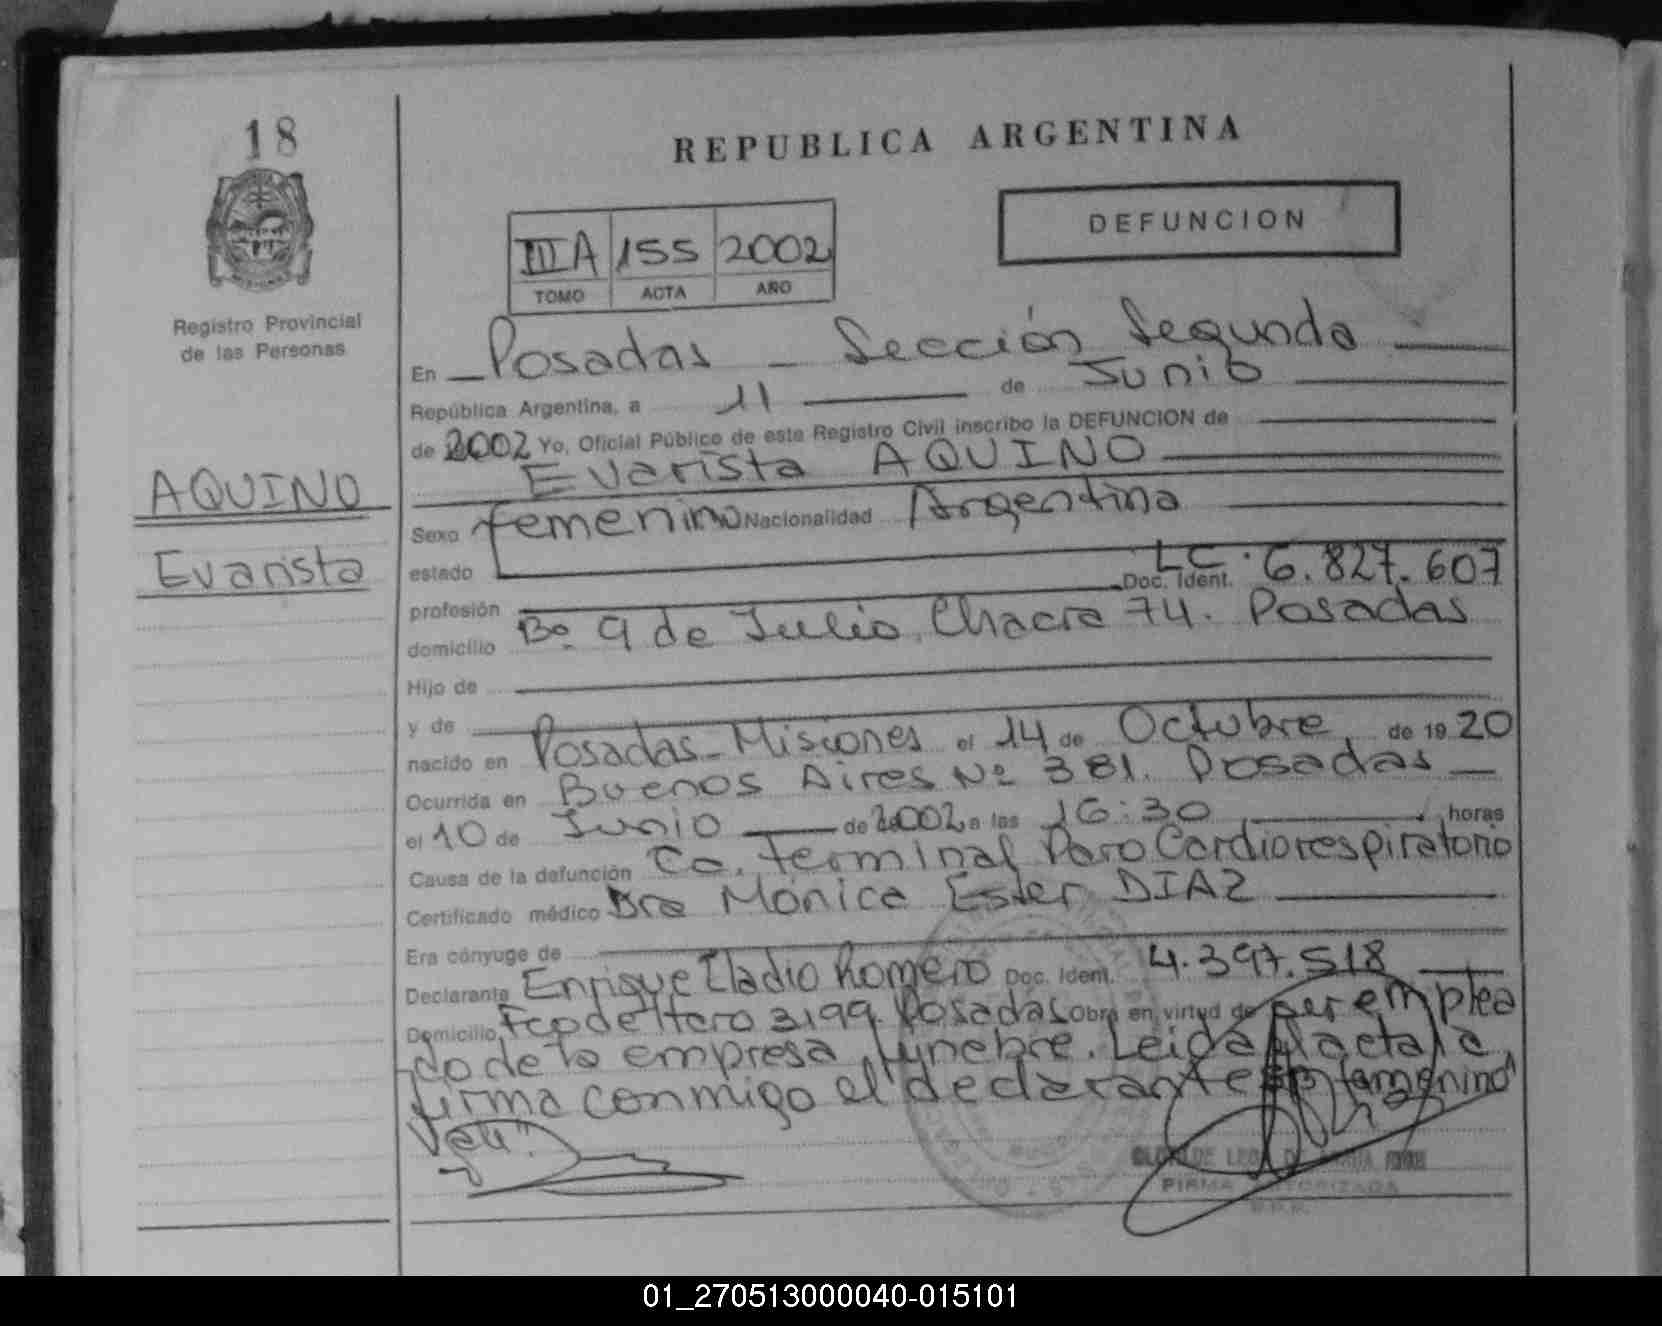 18
REPUBLICA ARGENTINA
DEFUNCION
IIIA 155 2002
TOMO ACTA AÑO
Registro Provincial
de las Personas
En Posadas - Sección Segunda
República Argentina, a 11 de Junio
de 2002 Yo, Oficial Público de este Registro Civil inscribo la DEFUNCION de
Evarista AQUINO
AQUINO
Evarista
Sexo femenino Nacionalidad Argentina
estado Doc. Ident. LC. 6.827.607
profesión
domicilio Bo. 9 de Julio, Chacra 74. Posadas
Hijo de
y de
nacido en Posadas - Misiones el 14 de Octubre de 1920
Ocurrida en Buenos Aires Nº 381. Posadas
el 10 de Junio de 2002 a las 16:30 horas
Causa de la defunción Ca. terminal Paro Cardiorespiratorio
Certificado médico Dra Mónica Ester DIAZ
Era cónyuge de
Declarante Enrique Eladio Romero Doc. Ident. 4.397.518
Domicilio Fcode Haro 3199. Posadas Obra en virtud de ser emplea
do de la empresa fúnebre. Leida el acta la
firma conmigo el declarante "femenino"
Vale"
FIRMA AUTORIZADA
01_270513000040-015101